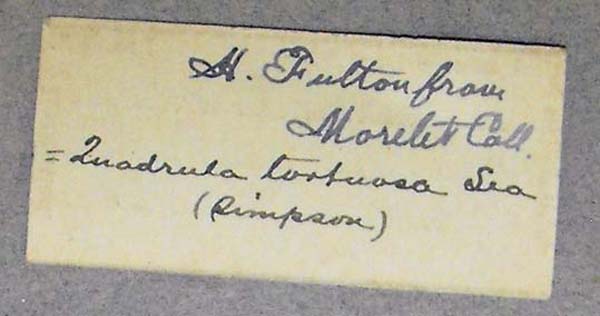 H. Fulton from
Morelet Coll.
= Quadrula tortuosa Lea
(Simpson)